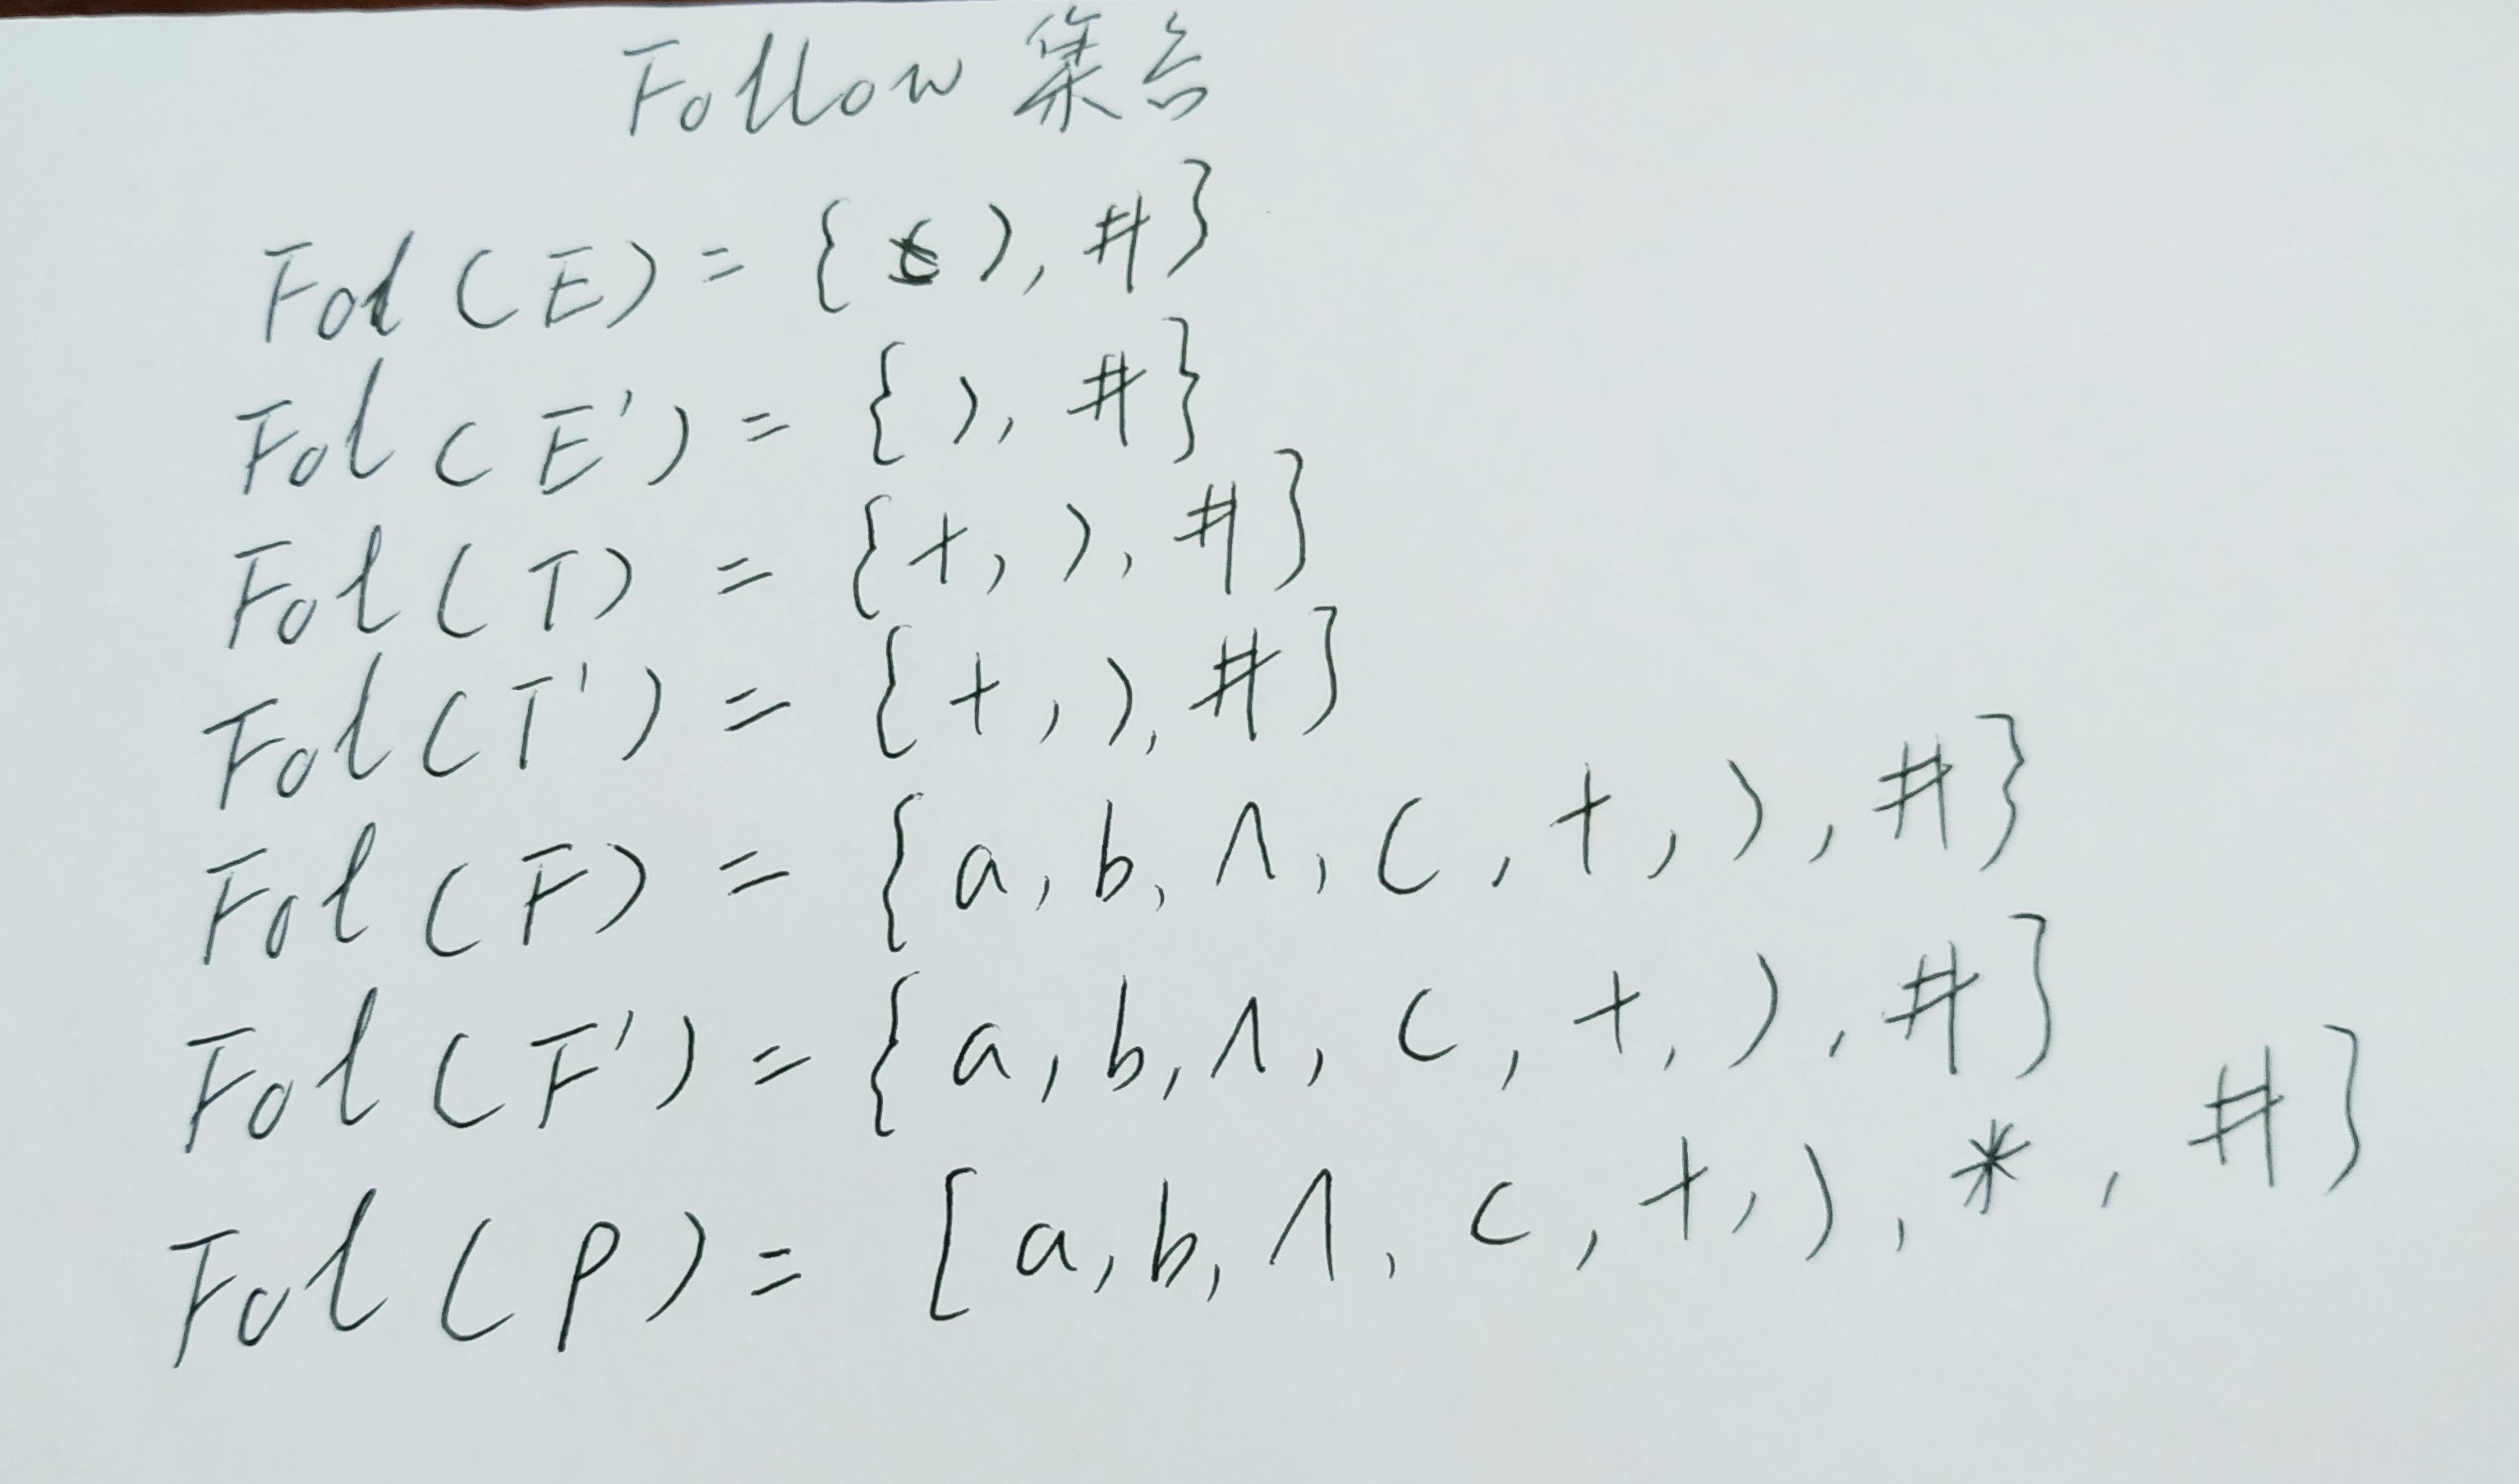 Follow 集合
Fol(E) = { ), #}
Fol(E') = { ), #}
Fol(T) = {+, ), #}
Fol(T') = {+, ), #}
Fol(F) = {a, b, Λ, (, +, ), #}
Fol(F') = {a, b, Λ, (, +, ), #}
Fol(P) = {a, b, Λ, (, +, ), *, #}